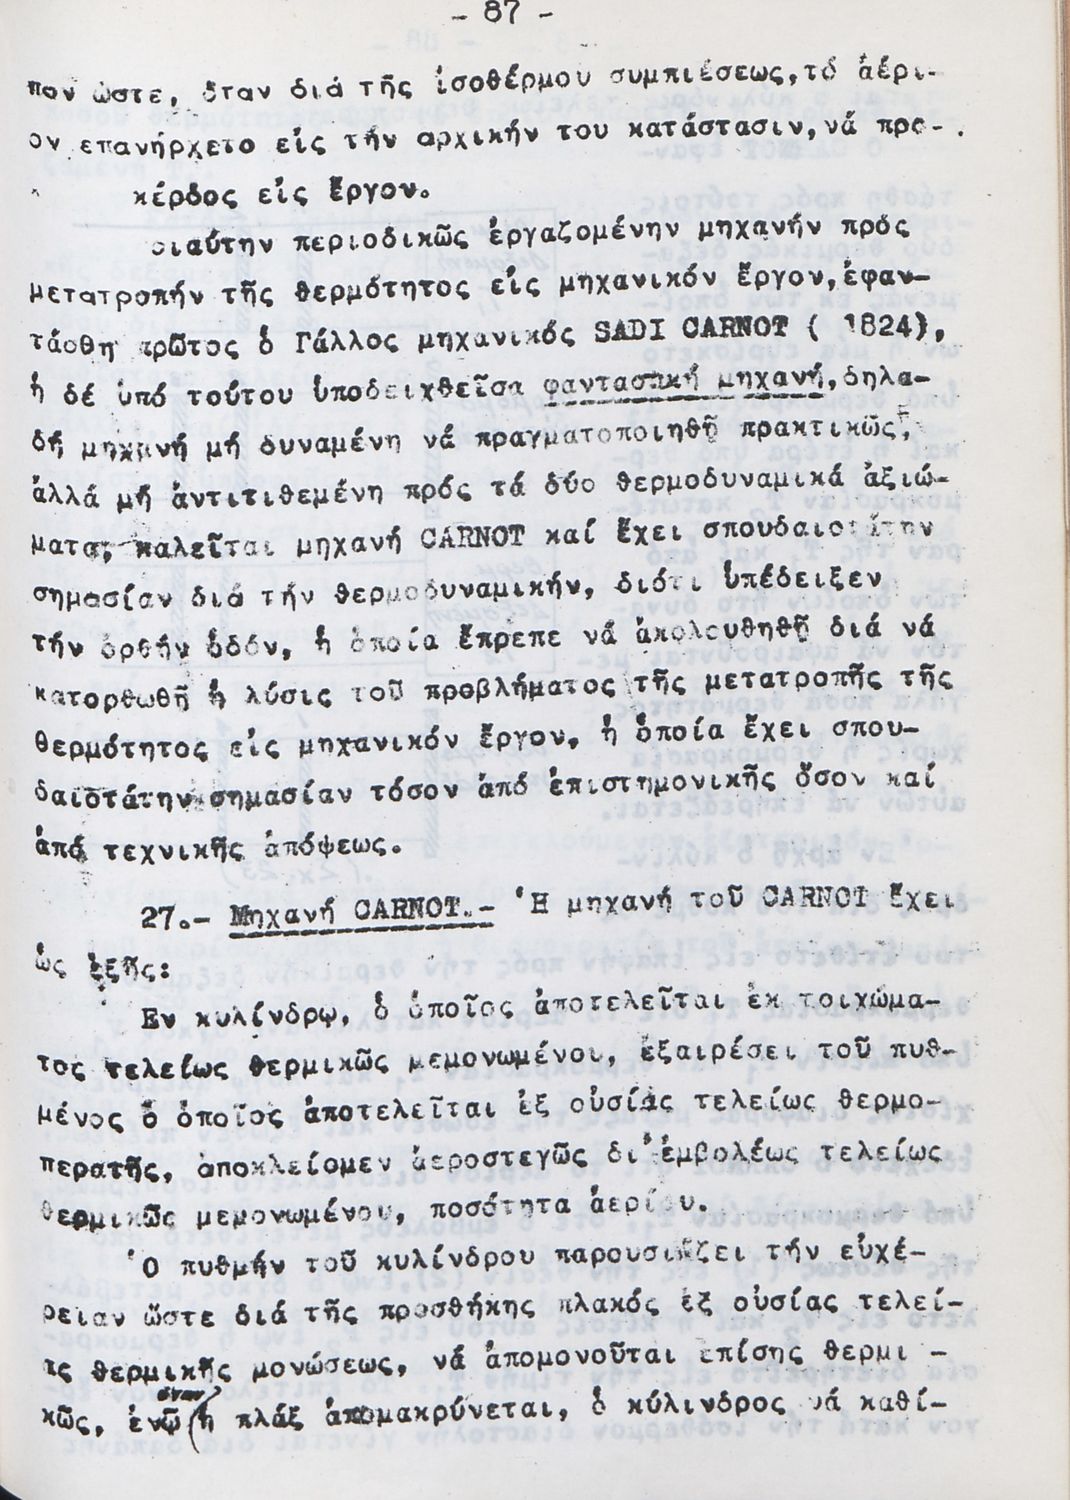 - 87 -
πον ὥστε, ὅταν διά τῆς ἰσοθέρμου συμπιέσεως, τό ἀέρι-
ον επανήρχετο εἰς τήν αρχικήν του κατάστασιν, νά προ-
κέρδος εἰς ἔργον.
οιαύτην περιοδικῶς ἐργαζομένην μηχανήν πρός
μετατροπήν τῆς θερμότητος εἰς μηχανικόν ἔργον, ἐφαν-
τάσθη πρῶτος ὁ Γάλλος μηχανικός SADI CARNOT ( 1824),
ἡ δέ ὑπό τούτου ὑποδειχθεῖσα φανταστική μηχανή, δηλα-
δή μηχανή μή δυναμένη νά πραγματοποιηθῇ πρακτικῶς,
ἀλλά μή ἀντιτιθεμένη πρός τά δύο θερμοδυναμικά ἀξιώ-
ματα, καλεῖται μηχανή CARNOT καί ἔχει σπουδαιοτάτην
σημασίαν διά τήν θερμοδυναμικήν, διότι ὑπέδειξεν
τήν ὀρθήν ὁδόν, ἡ ὁποία ἔπρεπε νά ἀκολουθηθῇ διά νά
κατορθωθῇ ἡ λύσις τοῦ προβλήματος τῆς μετατροπῆς τῆς
θερμότητος εἰς μηχανικόν ἔργον, ἡ ὁποία ἔχει σπου-
δαιοτάτην σημασίαν τόσον ἀπό ἐπιστημονικῆς ὅσον καί
ἀπό τεχνικῆς ἀπόψεως.
27.- Μηχανή CARNOT.- Ἡ μηχανή τοῦ CARNOT ἔχει
ὡς ἑξῆς:
Εν κυλίνδρῳ, ὁ ὁποῖος ἀποτελεῖται ἐκ τοιχώμα-
τος τελείως θερμικῶς μεμονωμένου, ἐξαιρέσει τοῦ πυθ-
μένος ὁ ὁποῖος ἀποτελεῖται ἐξ οὐσίας τελείως θερμο-
περατῆς, ἀποκλείομεν ἀεροστεγῶς δι' ἐμβολέως τελείως
θερμικῶς μεμονωμένου, ποσότητα ἀερίου.
Ὁ πυθμήν τοῦ κυλίνδρου παρουσιάζει τήν εὐχέ-
ρειαν ὥστε διά τῆς προσθήκης πλακός ἐξ οὐσίας τελεί-
ας θερμικῆς μονώσεως, νά ἀπομονοῦται ἐπίσης θερμι -
κῶς, ἐνῷ ὅταν ἡ πλάξ ἀπομακρύνεται, ὁ κύλινδρος νά καθί-